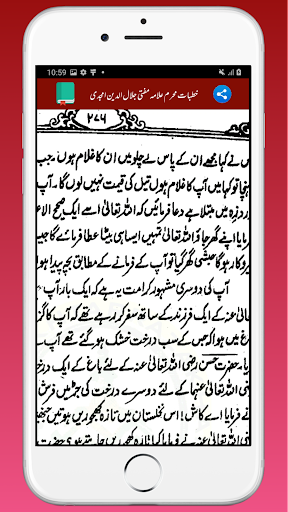 10:59
خطبات محرم علامہ مفتی جلال الدین امجدی
۲۷۶
س نے کہا مجھے ان کے پاس لے چلو میں ان کا غلام ہوں جب
پہنچا تو کہا میں آپ کا غلام ہوں تیل کی قیمت نہیں لوں گا۔ آپ
دردِ زہ میں مبتلا ہے دعا فرمائیں کہ اللہ تعالیٰ اسے ایک صحیح الاع
رمایا اپنے گھر جاؤ اللہ تعالیٰ تمہیں ایسا ہی بیٹا عطا فرمائے گا جیسا
یرو کار ہو گا حبشی گھر گیا تو آپ کے فرمانے کے مطابق بچہ پیدا ہوا
آپ کی دوسری مشہور کرامت یہ ہے کہ ایک بار آپ
الیٰ عنہ کے ایک فرزند کے ساتھ سفر کر رہے تھے کہ آپ کا گز
غ میں ہوا کہ جس کے سب درخت خشک ہو گئے تھے
یا۔ حضرت حسن رضی اللہ تعالیٰ عنہ کے لئے باغ کے ایک درخت
اللہ تعالیٰ عنہما کے لئے دوسرے درخت کی جڑ میں فرش
نے فرمایا اے کاش! اس نخلستان میں تازہ کھجوریں ہوتیں جنہیں